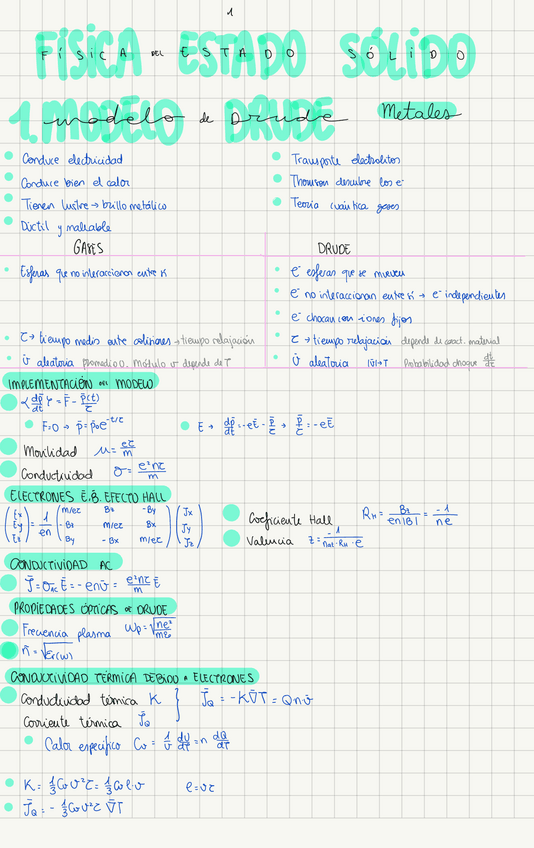 1
FÍSICA DEL ESTADO SÓLIDO
1. MODELO de DRUDE Metales
Conduce electricidad
Conduce bien el calor
Tienen lustre → brillo metálico
Dúctil y maleable
Transporte electrolitos
Thomson descubre los e⁻
Teoría cuántica gases
GASES
Esferas que no interaccionan entre sí
τ → tiempo medio entre colisiones → tiempo relajación
v̄ aleatoria promedio 0. Módulo v depende de T
DRUDE
e⁻ esferas que se mueven
e⁻ no interaccionan entre sí → e⁻ independientes
e⁻ chocan con iones fijos
τ → tiempo relajación depende de caract. material
v̄ aleatoria |v̄|→T Probabilidad choque dt/τ
IMPLEMENTACIÓN DEL MODELO
⟨dp̄/dt⟩ = F̄ - p̄(t)/τ
F=0 → p̄=p̄₀e^(-t/τ)
E → dp̄/dt = -eĒ - p̄/τ → p̄/τ = -eĒ
Movilidad μ = eτ/m
Conductividad σ = e²nτ/m
ELECTRONES E, B. EFECTO HALL
(Ex Ey Ez) = 1/en (m/eτ Bz -By / -Bz m/eτ Bx / By -Bx m/eτ) (Jx Jy Jz)
Coeficiente Hall R_H = Bz/en|B| = -1/ne
Valencia z = -1/(n_at · R_H · e)
CONDUCTIVIDAD AC
J̄ = σ_AC Ē = -env̄ = e²nτ/m Ē
PROPIEDADES ÓPTICAS DE DRUDE
Frecuencia plasma ωp = √(ne²/mε₀)
n̄ = √εr(ω)
CONDUCTIVIDAD TÉRMICA DEBIDO A ELECTRONES
Conductividad térmica K } J̄_Q = -K∇̄T = Qnv̄
Corriente térmica J̄_Q
Calor específico Cv = 1/V dU/dT = n dQ/dT
K = 1/3 Cv v²τ = 1/3 Cv l·v l = vτ
J̄_Q = - 1/3 Cv v²τ ∇̄T